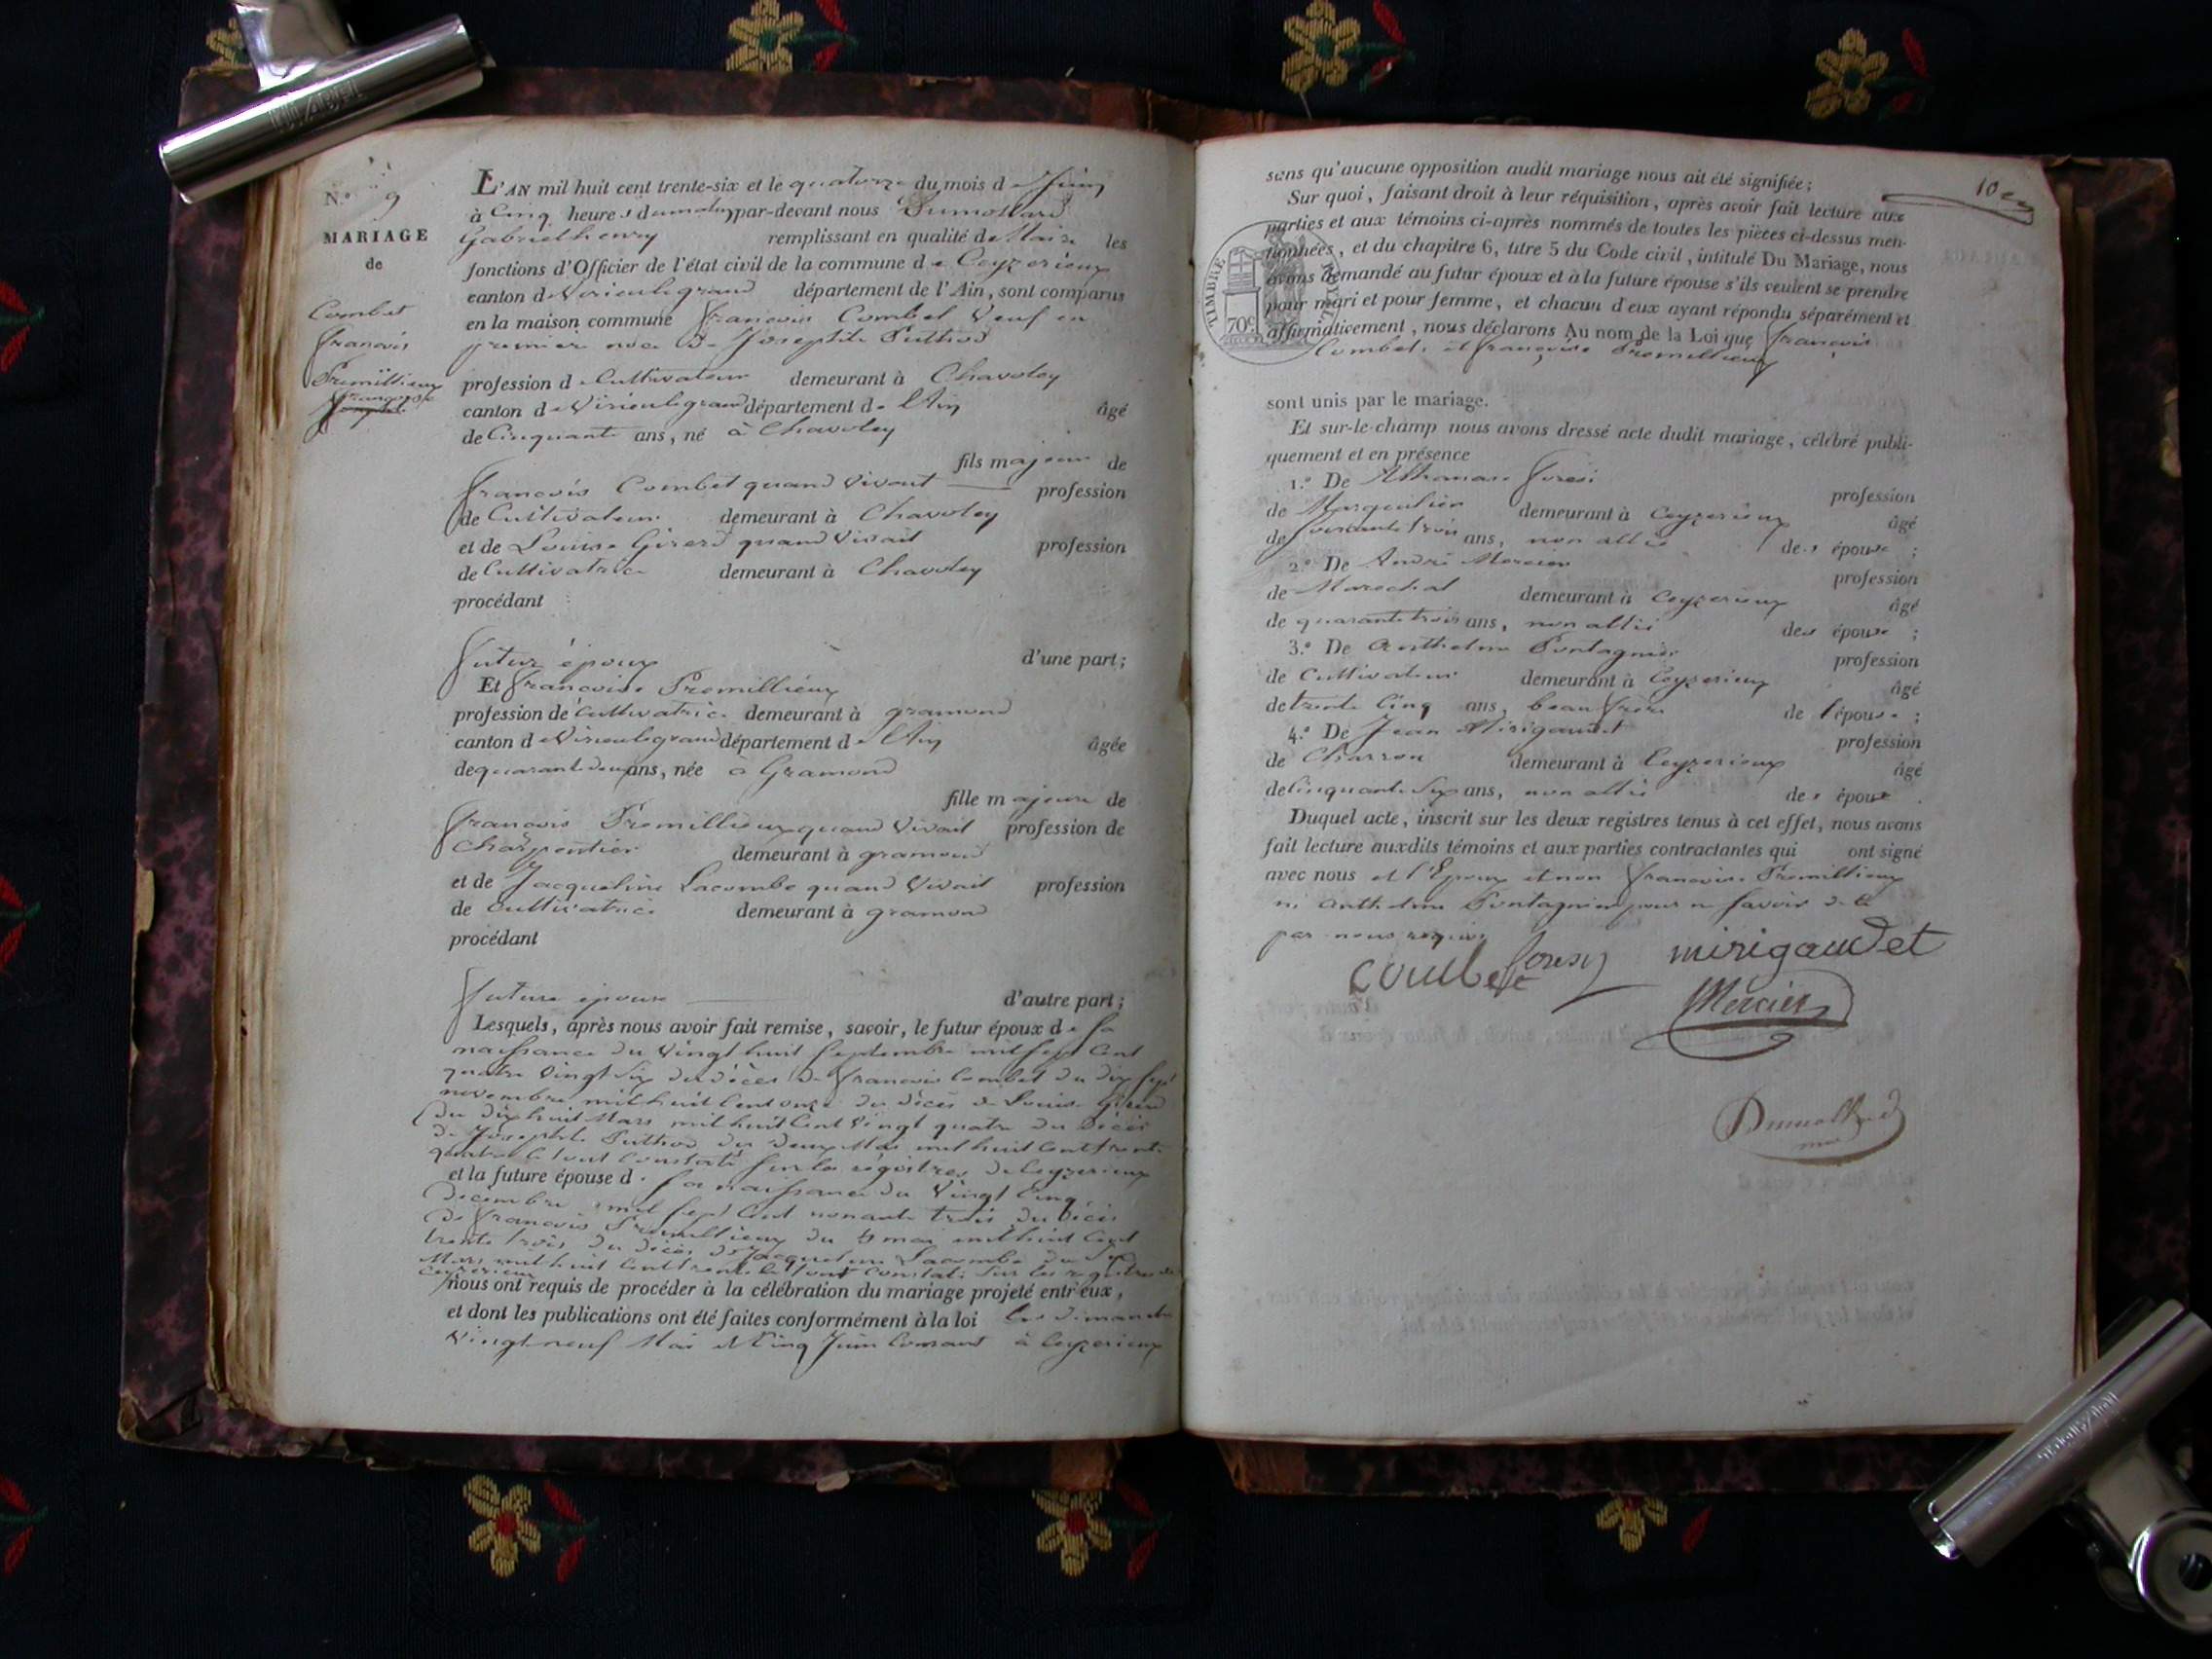 N.° 9
MARIAGE
de
Combet
francois
Premillieux
françoise
L'AN mil huit cent trente-six et le quatorze du mois de Juin
à Cinq heures du matin par-devant nous Dumollard
Gabriel henry remplissant en qualité de Maire les
fonctions d'Officier de l'état civil de la commune de Ceyzerieux
canton de Virieulegrand département de l'Ain, sont comparus
en la maison commune francois Combet Veuf en
premier noce de Josephte Puthod
profession de Cultivateur demeurant à Chavoley
canton de Virieulegrand département de l'Ain âgé
de Cinquante ans, né à Chavoley
fils majeur de
francois Combet quand vivait profession
de Cultivateur demeurant à Chavoley
et de Louise Girerd quand Vivait profession
de Cultivatrice demeurant à Chavoley
procédant
futur époux d'une part;
Et francoise Premillieux
profession de cultivatrice demeurant à gramond
canton de Virieulegrand département de l'Ain âgée
de quarante deux ans, née à Gramond
fille majeure de
francois Premillieux quand Vivait profession de
Charpentier demeurant à gramond
et de Jacqueline Lacombe quand Vivait profession
de cultivatrice demeurant à gramond
procédant
future épouse d'autre part;
Lesquels, après nous avoir fait remise, savoir, le futur époux de sa
naissance du Vingt huit Septembre mil sept Cent
quatre Vingt Six du décès de francois Combet du dix sept
novembre mil huit Cent onze du décès de Louise Girerd
du dix huit Mars mil huit Cent Vingt quatre du Décès
de Josephte Puthod du deux Mai mil huit Cent trente
quatre le tout Constaté sur les régistres de Ceyzerieux
et la future épouse de sa naissance du Vingt Cinq
Decembre mil Sept Cent nonante trois du Décès
de francois Premillieux du 9 mai mil huit Cent
trente trois du décès de Jacqueline Lacombe du
Mars mil huit Cent trente le tout Constaté sur les registres de
Ceyzerieux
nous ont requis de procéder à la célébration du mariage projeté entr'eux,
et dont les publications ont été faites conformément à la loi les dimanches
Vingt-neuf Mai et Cinq Juin Courant à Ceyzerieux
10
sans qu'aucune opposition audit mariage nous ait été signifiée;
Sur quoi, faisant droit à leur réquisition, après avoir fait lecture aux
parties et aux témoins ci-après nommés de toutes les pièces ci-dessus men-
tionnées, et du chapitre 6, titre 5 du Code civil, intitulé Du Mariage, nous
avons demandé au futur époux et à la future épouse s'ils veulent se prendre
pour mari et pour femme, et chacun d'eux ayant répondu séparément et
affirmativement, nous déclarons Au nom de la Loi que francois
Combet et françoise Premillieux
TIMBRE ROYAL
70c
sont unis par le mariage.
Et sur-le-champ nous avons dressé acte dudit mariage, célébré publi-
quement et en présence
1.° De Athanase Joresi
profession
de Marguillier demeurant à Ceyzerieux âgé
de Soixante trois ans, non allié des époux;
2.° De André Mercier
profession
de Marechal demeurant à Ceyzerieux âgé
de quarante trois ans, non allié des époux;
3.° De Anthelme Pontagnier
profession
de Cultivateur demeurant à Ceyzerieux âgé
de trente Cinq ans, beau frère de l'épouse;
4.° De Jean Mirigaudet
profession
de Charron demeurant à Ceyzerieux âgé
de Cinquante Six ans, non allié des époux.
Duquel acte, inscrit sur les deux registres tenus à cet effet, nous avons
fait lecture auxdits témoins et aux parties contractantes qui ont signé
avec nous et l'Epoux et non francoise Premillieux
ni Anthelme Pontagnier pour ne savoir de ce
par nous requis
combet mirigaudet
Mercier
Dumollard